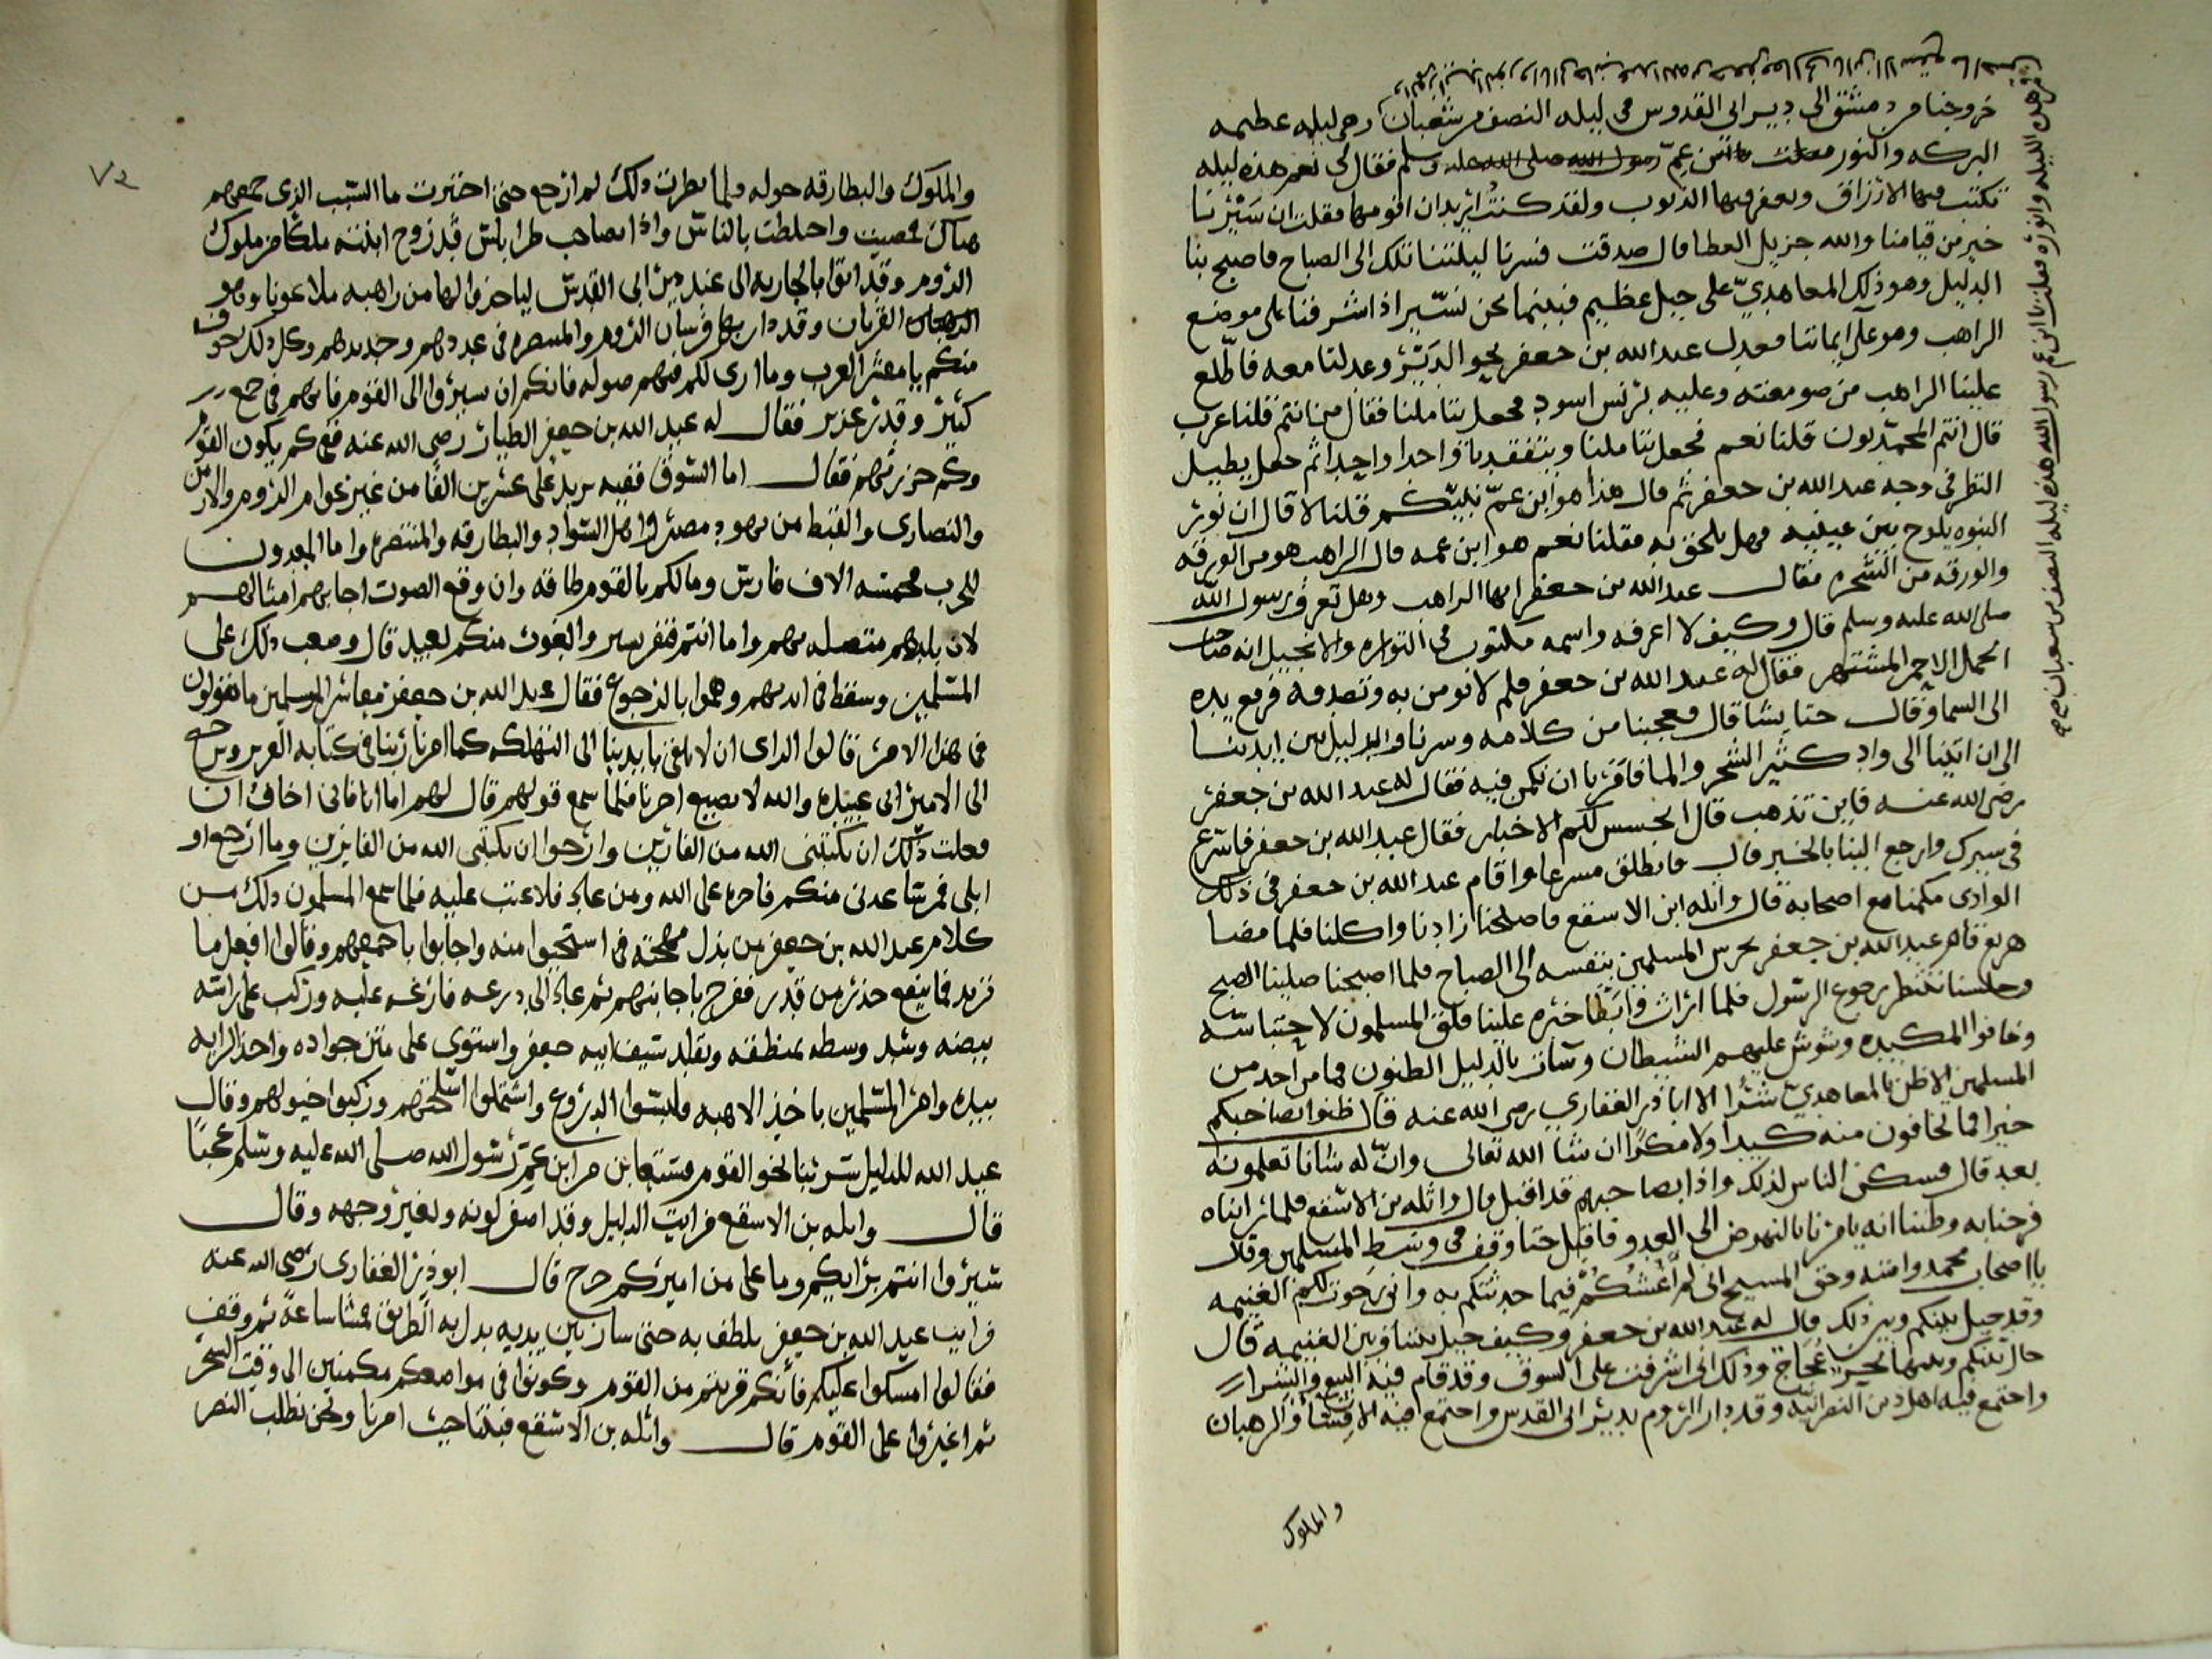 خروجنا من دمشق الى دير ابى القدوس فى ليله النصف من شعبان وهى ليله عظيمه
البركه والنور فقلت يا ابن عم رسول الله صلى الله عليه وسلم فقال لى نعم هذه ليله
تكتب فيها الارزاق ويغفر فيها الذنوب ولقد كنت اريد ان اقومها فقلت ان سَيْرنا
خير من قيامنا والله جزيل العطا قال صدقت فسرنا ليلتنا تلك الى الصباح فاصبح بنا
الدليل وهو ذلك المعاهديّ على جبل عظيم فبينما نحن نسير اذ اشرفنا على موضع
الراهب وهو على ايماننا فعدل عبد الله بن جعفر نحو الديْر وعدلنا معه فاطّلع
علينا الراهب من صومعته وعليه برنس اسود فجعل يتاملنا فقال من انتم قلنا عرب
قال انتم المحمديون قلنا نعم فجعل يتاملنا ويتفقدنا واحدا واحدا ثم جعل يطيل
النظر فى وجه عبد الله بن جعفر ثم قال هذا هو ابن عمّ نبيّكم قلنا لا قال ان نور
النبوه يلوح بين عينيه فهل يلحق به فقلنا نعم هو ابن عمه قال الراهب هو من الورقه
والورقه من الشجره فقال عبد الله بن جعفر ايها الراهب وهل تعرف رسول الله
صلى الله عليه وسلم قال وكيف لا اعرفه واسمه مكتوب فى التوراه والانجيل انه صاحب
الجمل الاحمر المشتهر فقال له عبد الله بن جعفر فلم لا نومن به وتصدقه فرفع يده
الى السما وقال حتا يشا قال فعجبنا من كلامه وسرنا والدليل بين ايدينا
الى ان اتينا الى واد كثير الشجر والما فامرنا ان نكمن فيه فقال له عبد الله بن جعفر
رضى الله عنه فاين تذهب قال اتجسس لكم الاخبار فقال عبد الله بن جعفر فاسرع
فى سيرك وارجع الينا بالخبر قال فانطلق مسرعا واقام عبد الله بن جعفر فى ذلك
الوادى مكمنا مع اصحابه قال واثله ابن الاسقع فاصلحنا زادنا واكلنا فلما مضا
هريع قام عبد الله بن جعفر يحرس المسلمين بنفسه الى الصباح فلما اصبحنا صلينا الصبح
وجلسنا ننتظر رجوع الرسول فلما وابطا خبره علينا قلق المسلمون لاحتباسه
وخافوا المكيده وشوش عليهم الشيطان وسات بالدليل الظنون فما من احد من
المسلمين الا ظن بالمعاهديّ شرّا الا ابا ذر الغفاري رضى الله عنه قال ظنوا بصاحبكم
خيرا فما تخافون منه كيدا ولا مكرًا ان شا الله تعالى وانّ له شانا تعلمونه
بعد قال فسكن الناس لذلك واذا بصاحبهم قد اقبل قال واثله بن الاسقع فلما رايناه
فرحنا به وظننا انه يامرنا بالنهوض الى العدو فاقبل حتا وقف فى وسط المسلمين وقال
يا اصحاب محمد وامته وحق المسيح انى لم اغشكم فيما حدثتكم به وانى رجوت لكم الغنيمه
وقد حيل بينكم وبين ذلك قال له عبد الله بن جعفر وكيف حيل بيننا وبين الغنيمه قال
حال بينكم وبينها بحر عُجاج وذلك انى اشرفت على السوق وقد قام فيه البيع والشرا
واجتمع فيه اهل دين النصرانيّه وقد دار الروم بدير ابى القدس واجتمع فيه القسّا والرهبان
والملوك
من هذه الليله وانوره فقلت يا ابن عم رسول الله هذه ليله النصف من شعبان
٧٢
والملوك والبطارقه حوله فلما نظرت ذلك لم ارجع حتى اختبرت ما السّبب الذى جمعهم
هناك فمضيت واختلطت بالناسّ واذا بصاحب طرابلسّ قد زوج ابنته ملكًا من ملوك
الروم وقد اتوا بالجاريه الى عند دين ابى القدسّ لياخذوا لها من راهبه
القربان وقد دار بها فرسان الروم والمنتصره فى عددهم وحديدهم وكل ذلك خوف
منكم يا معشر العرب وما ارى لكم فيهم صوله فانكم ان سيروا الى القوم فانهم فى جمع
كثير وقدر غزير فقال له عبد الله بن جعفر الطيار رضى الله عنه فى كم يكون القوم
وكم حزرتهم فقال اما السّوق ففيه يزيد على عشرين الفًا من غير عوام الروم والارمن
والنصارى والقبط من يهود مصر واهل السّواد والبطارقه والمنتصره واما المعدون
للحرب فخمسه الاف فارسّ وما لكم بالقوم طاقه وان وقع الصوت اجابهم امثالهم
لان بلدهم متصله بهم واما انتم فنفر يسير والغوث منكم بعيد قال وصعب ذلك على
المسّلمين وسقط فى ايديهم وهموا بالرجوع فقال عبد الله بن جعفر معاشر المسلمين ما تقولون
فى هذا الامر قالوا الراى ان لا نلقى بايدينا الى التهلكه كما امرنا ربنا فى كتابه العزيز ونرجع
الى الامير ابى عبيده والله لا يضيع اجرنا فلما سمع قولهم قال لهم اما انا فانى اخاف ان
فعلت ذلك ان يكتبنى الله من الفارين وارجوا ان يكتبنى الله من الفايزين وما ارجع او
ابلى فمن ساعدنى منكم فاجره على الله ومن عاد فلا عتب عليه فلما سمع المسلمون ذلك من
كلام عبد الله بن جعفر من بذل مهجته استحيوا منه واجابوا باجمعهم وقالوا افعل ما
تريد فما ينفع حذر من قدر ففرح باجابتهم ثم عاد الى درعه فافرغه عليه وركب على راسّه
بيضه وشد وسطه بمنطقه وتقلد سيف ابيه جعفر واستوى على متن جواده واخذ الرايه
بيده وامر المسّلمين باخذ الاهبه فلبسّوا الدروع واشتملوا اسّلحتهم وركبوا خيولهم وقال
عبد الله للدليل سر بنا نحو القوم فستعاين من ابن عم رسّول الله صلى الله عليه وسّلم عجبًا
قال واثله بن الاسقع فرايت الدليل وقد اصفر لونه وتغير وجهه وقال
سيروا انتم برايكم وما على من اميركم حرج قال ابو ذر الغفارى رضى الله عنه
فرايت عبد الله بن جعفر يلطف به حتى سار بين يديه يدل به الطريق فمشا ساعة ثم وقف
فقالوا امسكوا عليكم فانكم قربتم من القوم وكونوا فى مواضعكم مكمنين الى وقت السّحر
ثم اغيروا على القوم قال واثله بن الاسّقع فبتنا حيث امرنا ونحن نطلب النصر